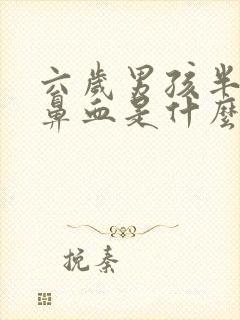 六歲男孩半
鼻血是什麼
挽秦